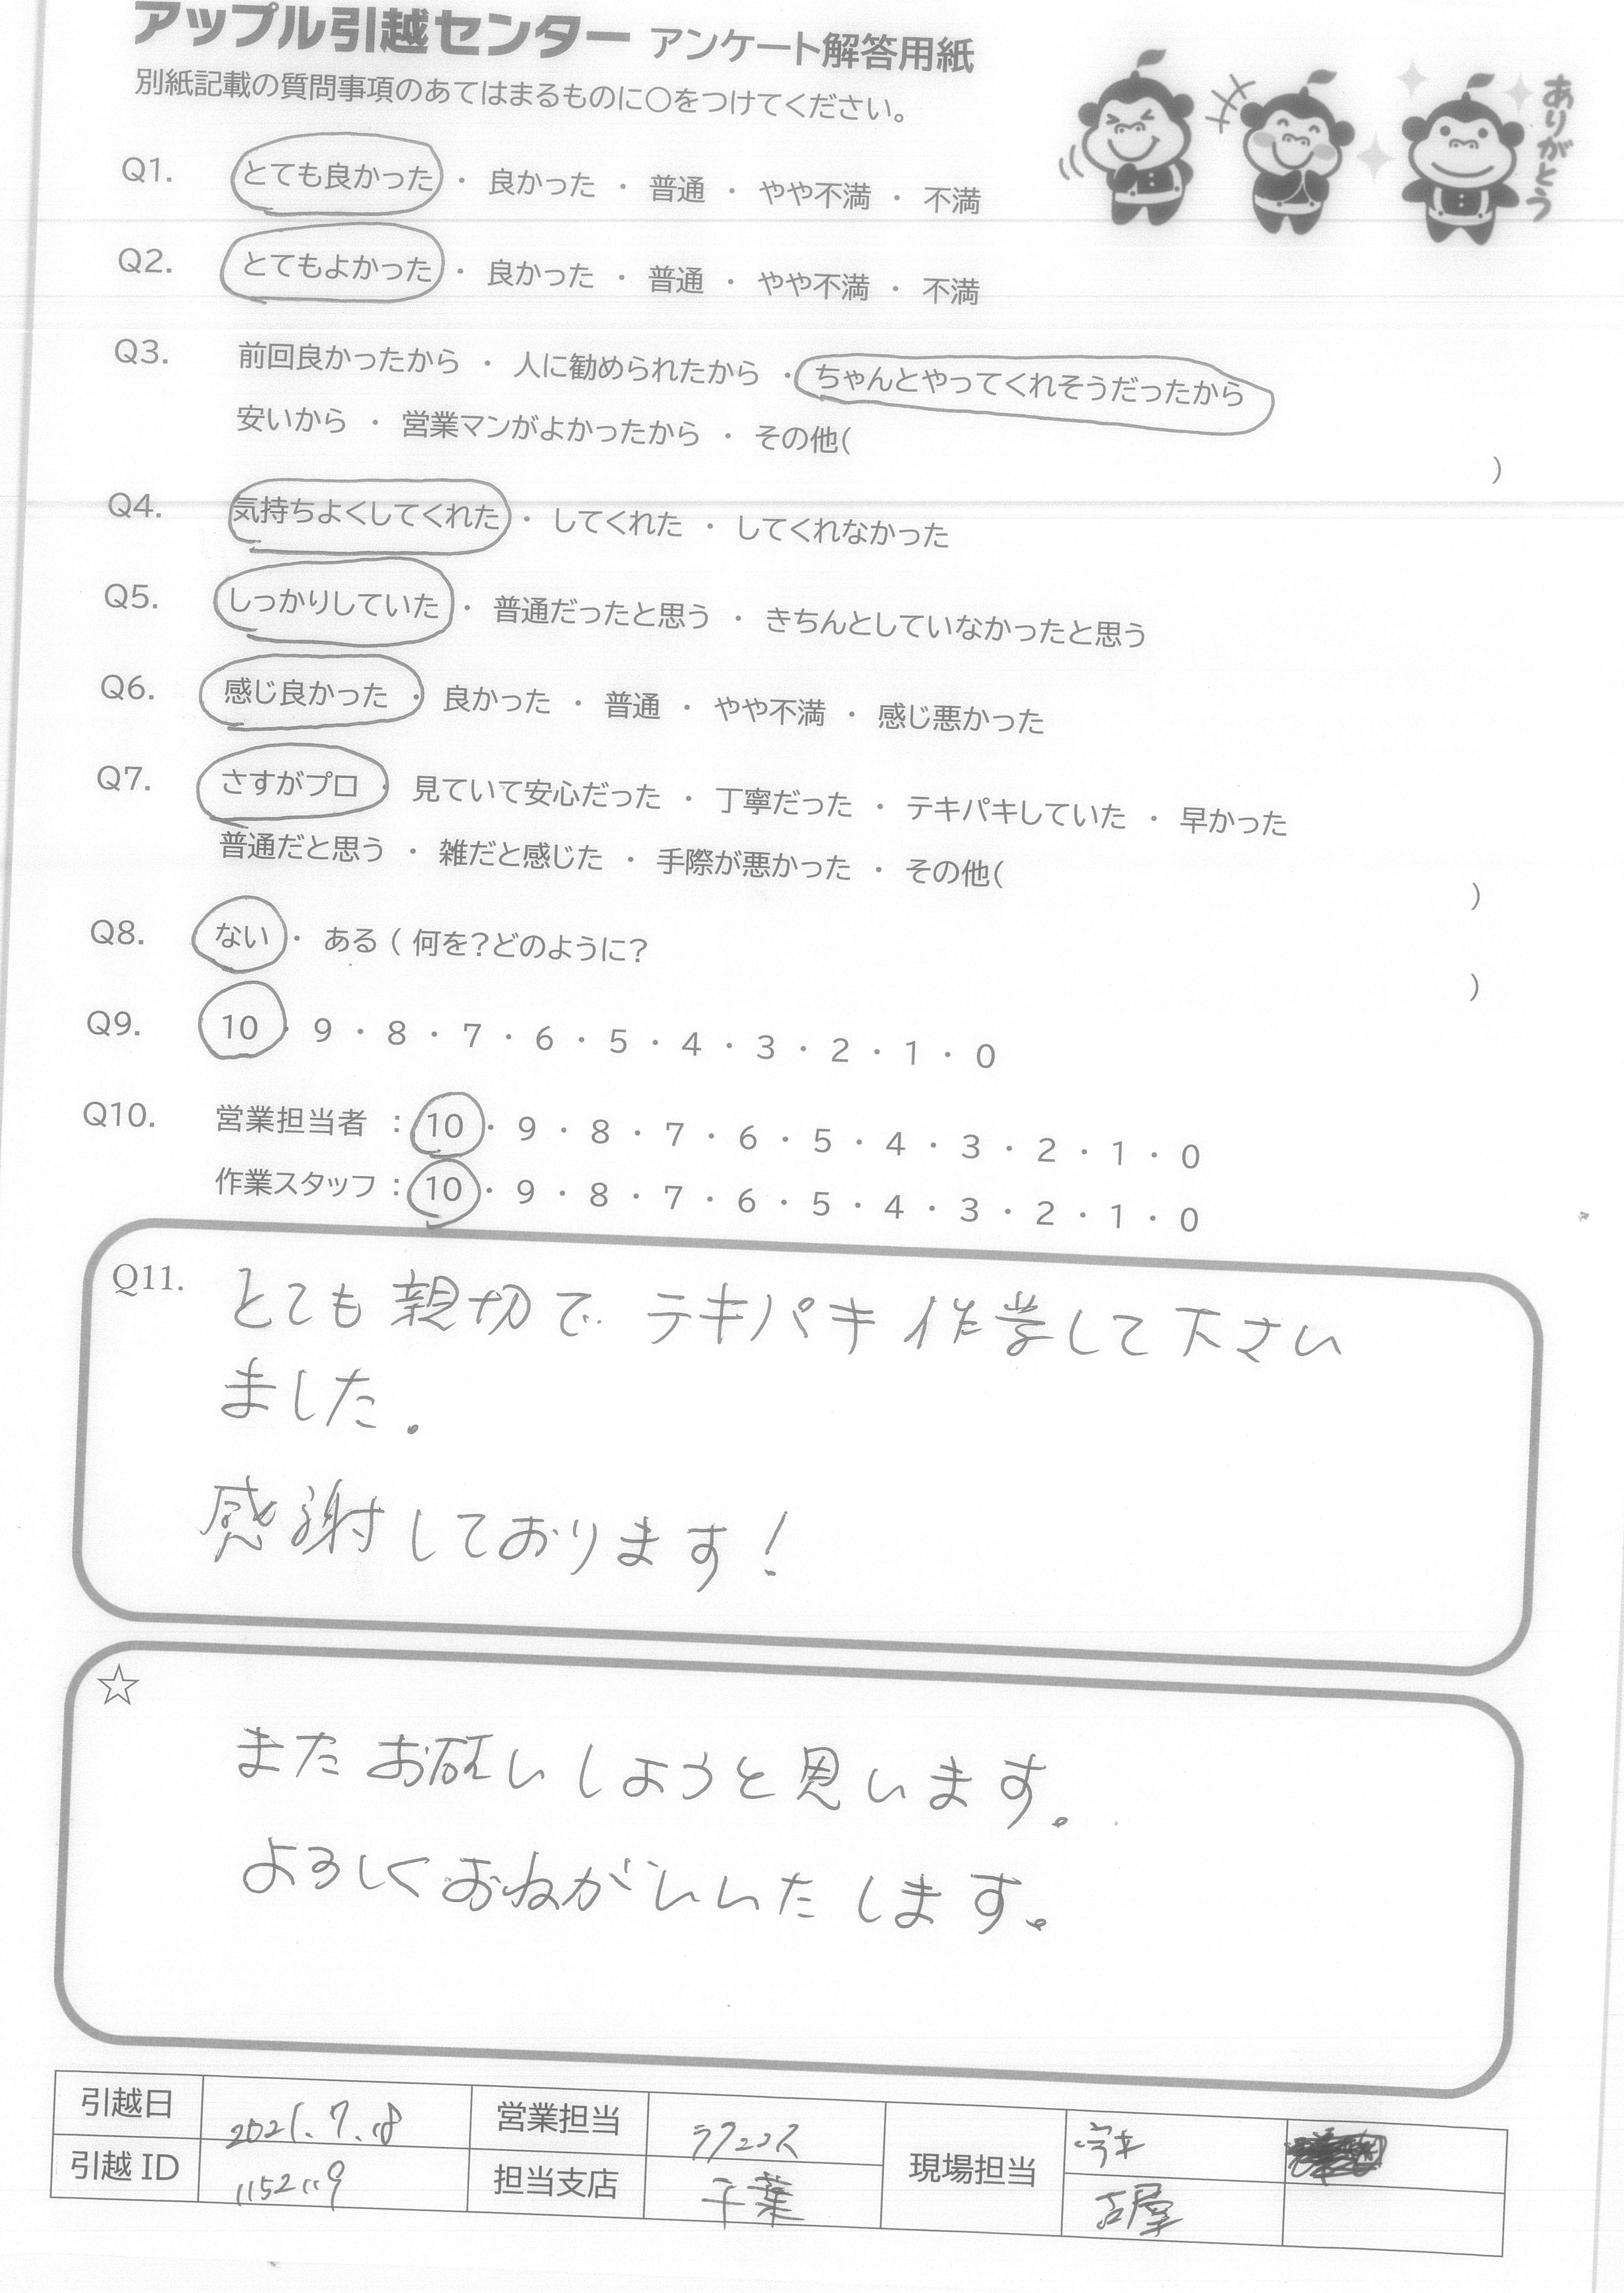 アップル引越センター アンケート解答用紙
別紙記載の質問事項のあてはまるものに○をつけてください。
ありがとう
Q1. とても良かった ・ 良かった ・ 普通 ・ やや不満 ・ 不満
Q2. とてもよかった ・ 良かった ・ 普通 ・ やや不満 ・ 不満
Q3. 前回良かったから ・ 人に勧められたから ・ ちゃんとやってくれそうだったから
安いから ・ 営業マンがよかったから ・ その他( )
Q4. 気持ちよくしてくれた ・ してくれた ・ してくれなかった
Q5. しっかりしていた ・ 普通だったと思う ・ きちんとしていなかったと思う
Q6. 感じ良かった ・ 良かった ・ 普通 ・ やや不満 ・ 感じ悪かった
Q7. さすがプロ ・ 見ていて安心だった ・ 丁寧だった ・ テキパキしていた ・ 早かった
普通だと思う ・ 雑だと感じた ・ 手際が悪かった ・ その他( )
Q8. ない ・ ある ( 何を?どのように? )
Q9. 10 ・ 9 ・ 8 ・ 7 ・ 6 ・ 5 ・ 4 ・ 3 ・ 2 ・ 1 ・ 0
Q10. 営業担当者 : 10 ・ 9 ・ 8 ・ 7 ・ 6 ・ 5 ・ 4 ・ 3 ・ 2 ・ 1 ・ 0
作業スタッフ : 10 ・ 9 ・ 8 ・ 7 ・ 6 ・ 5 ・ 4 ・ 3 ・ 2 ・ 1 ・ 0
Q11. とても親切で テキパキ作業して下さい
ました.
感謝しております!
☆
またお願いしようと思います。
よろしくおねがいいたします。
引越日 2021.7.18 営業担当
現場担当
引越ID 1152119 担当支店 千葉 古屋